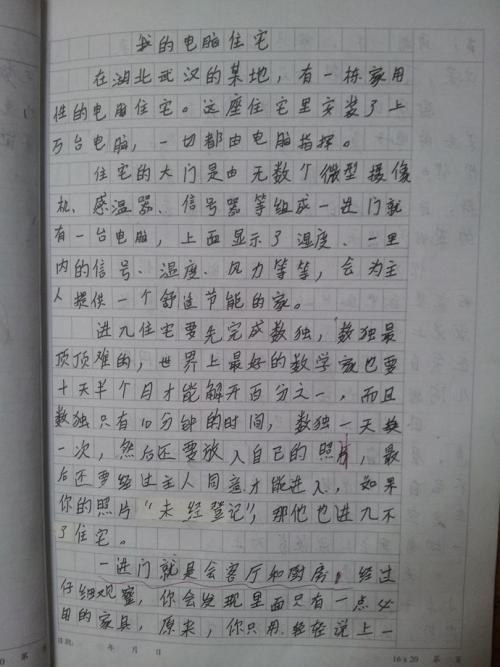 我的电脑住宅
在湖北武汉的某地，有一栋家用
性的电脑住宅。这座住宅里安装了上
万台电脑，一切都由电脑指挥。
住宅的大门是由无数个微型摄像
机、感温器、信号器等组成一进门就
有一台电脑，上面显示了湿度、一里
内的信号、温度、风力等等，会为主
人提供一个舒适节能的家。
进入住宅要先完成数独，数独最
顶顶难的，世界上最好的数学家也要
十天半个月才能解开百分之一，而且
数独只有10分钟的时间，数独一天换
一次，然后还要放入自己的照片，最
后还要经过主人同意才能进入，如果
你的照片“未经登记”，那他也进入不
了住宅。
一进门就是会客厅和厨房，经过
仔细观察，你会发现里面只有一点必
用的家具，原来，你只用轻轻说上一
日期： 年 月 日
16×20 第 页